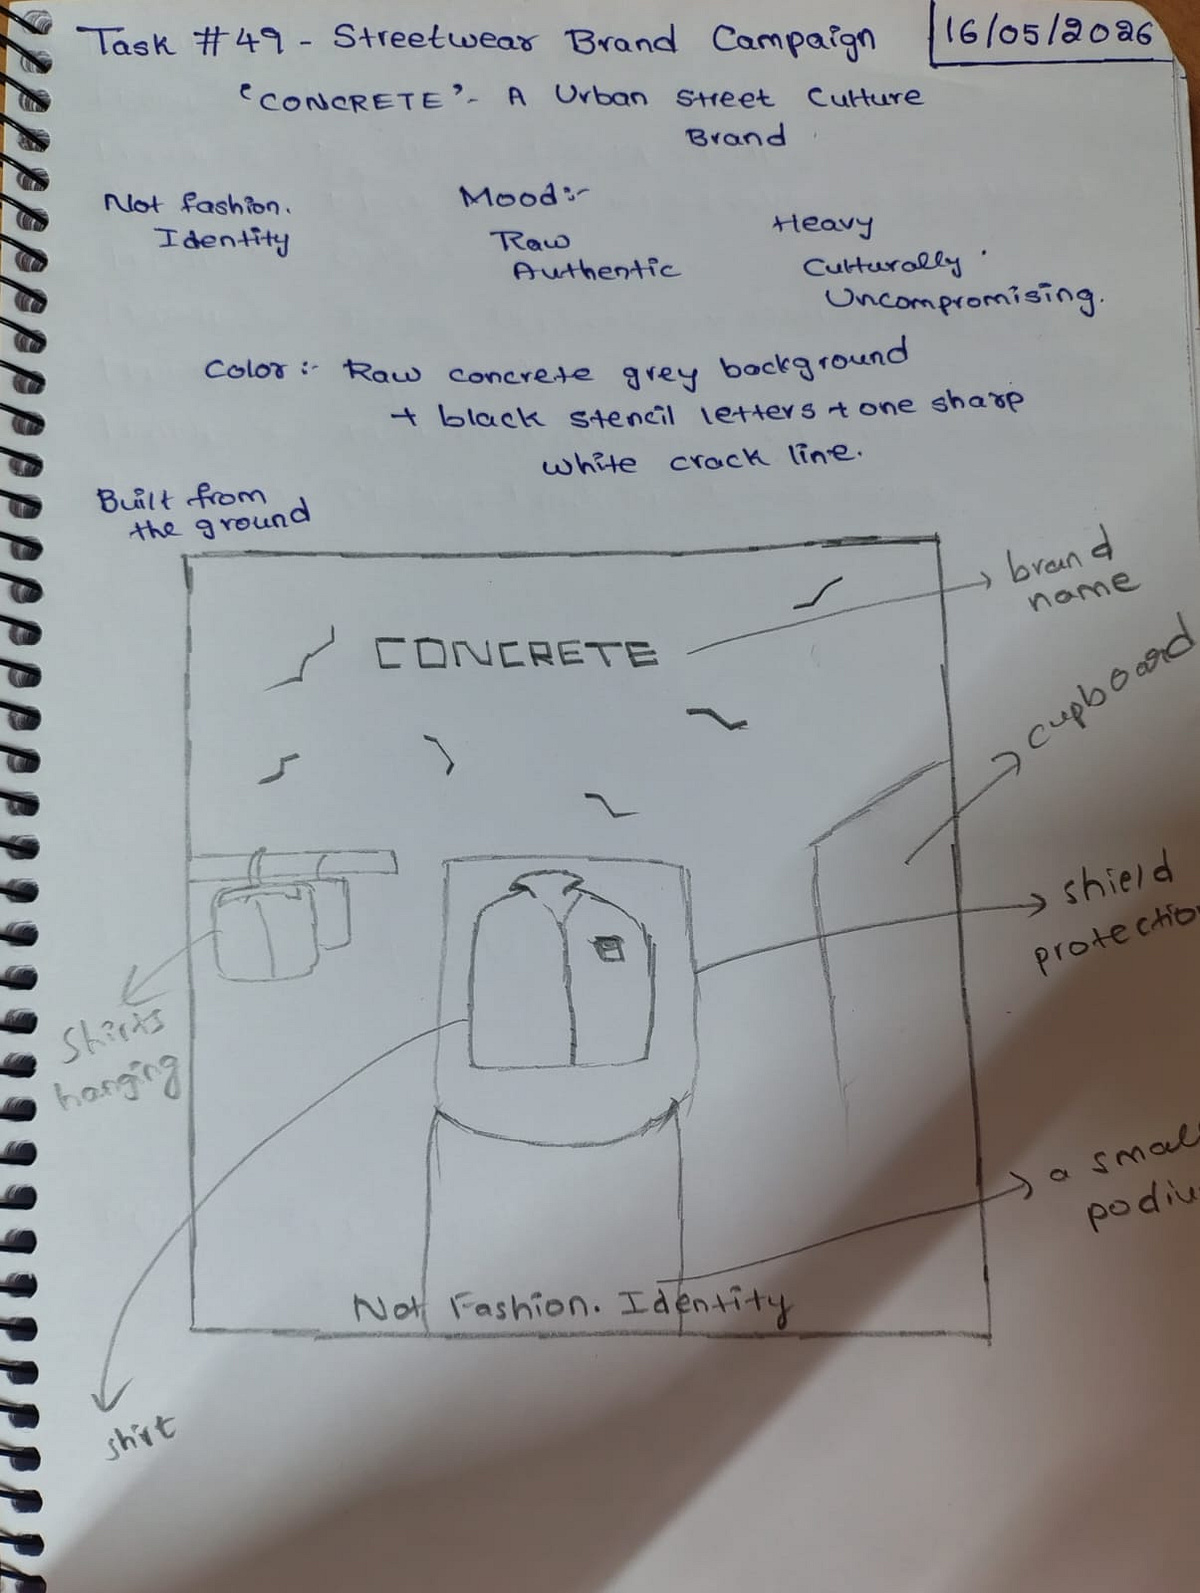 Task #49 - Streetwear Brand Campaign
16/05/2026
'CONCRETE' - A Urban Street Culture
Brand
Not fashion.
Identity
Mood:-
Raw
Authentic
Heavy
Culturally
Uncompromising.
Color :- Raw concrete grey background
+ black stencil letters + one sharp
white crack line.
Built from
the ground
brand
name
CONCRETE
cupboard
shield
protection
Shirts
hanging
a small
Not Fashion. Identity
shirt